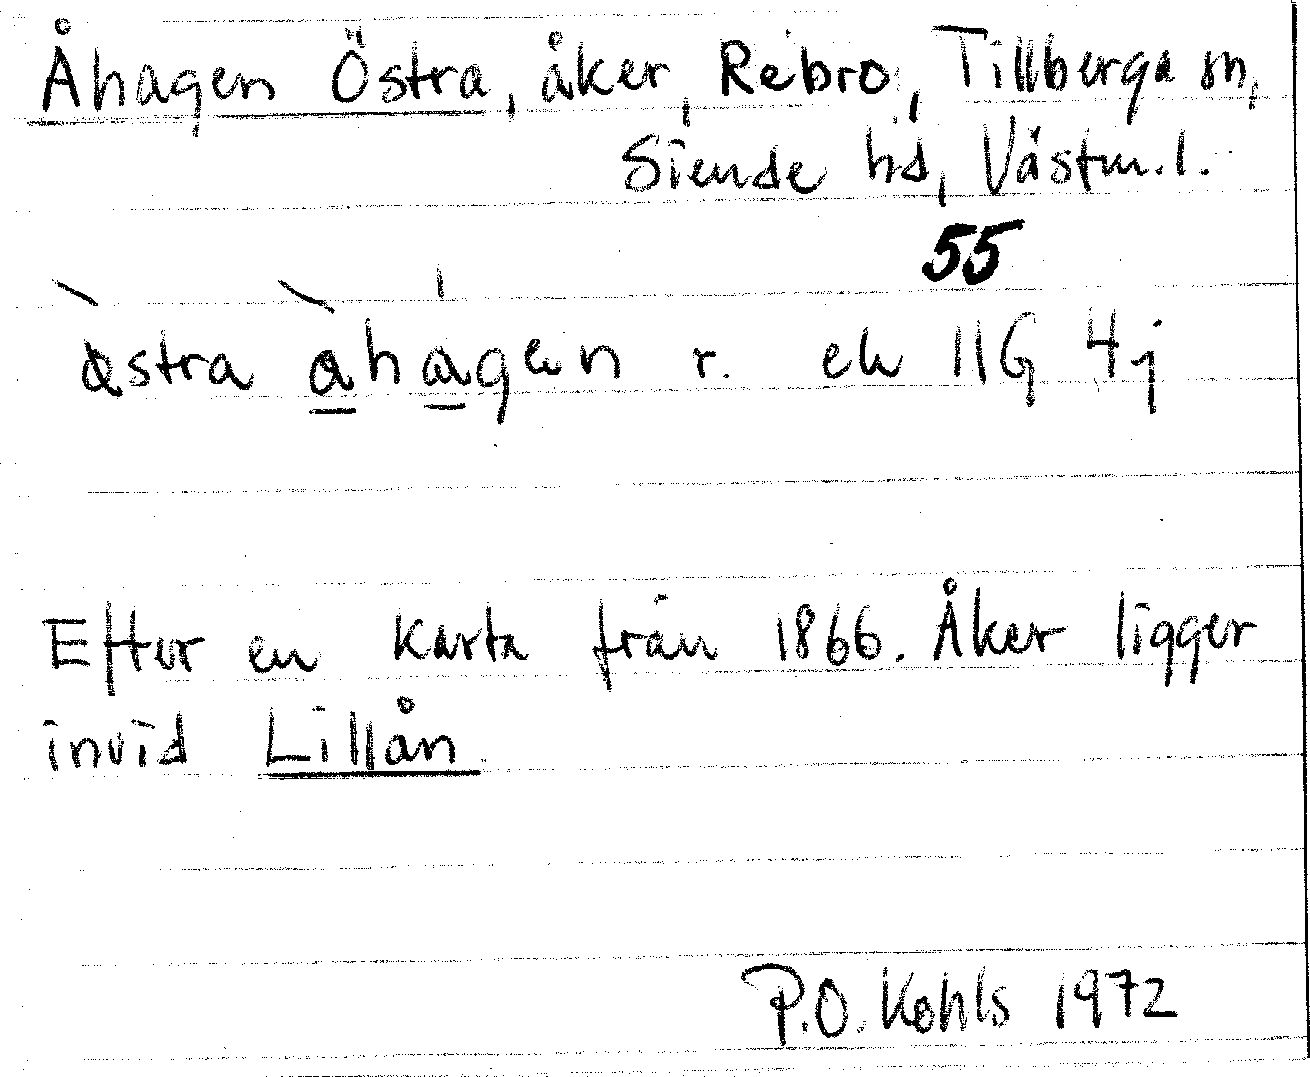 Åhagen Östra, åker, Rebro, Tillberga sn,
Siende hd, Västm.l.
55
r. ek 11G 4j
Efter en karta från 1866. Åker ligger
invid Lillån
P.O. Kohls 1972